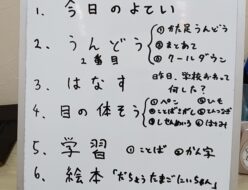 1. 今日のよてい
2. うんどう
2番目
①かた足うんどう
②まとあて
③クールダウン
3. はなす
昨日、学校おわって何した？
4. 目の体そう
①ペン ④ひも
②ことばさがし ⑤ひっつき
5. 学習 ①ことば ②かん字
6. 絵本「だちょうたまごにいちゃん」